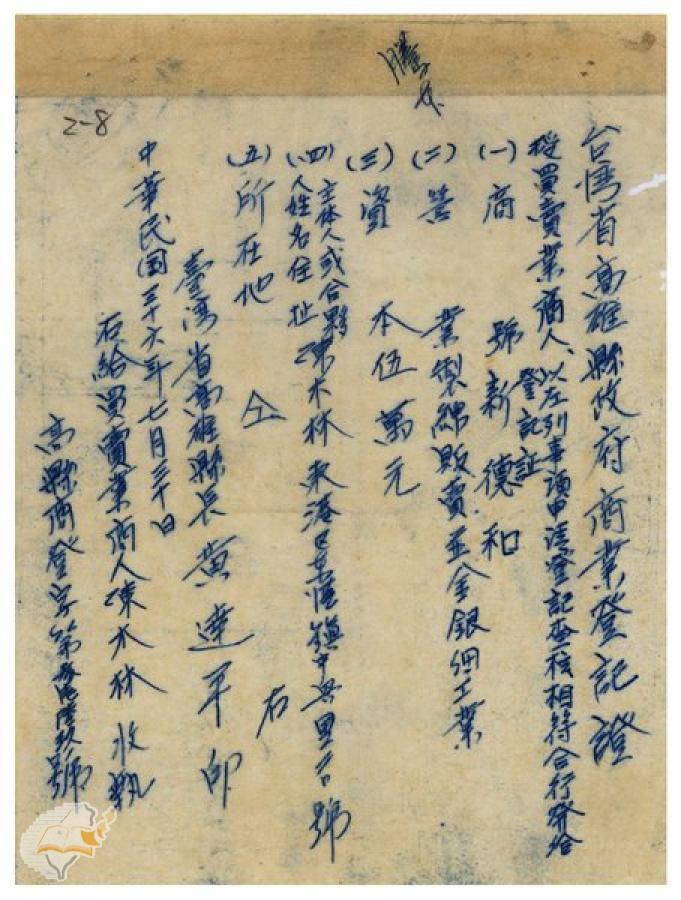 謄本
2-8
台湾省高雄縣政府商業登記證
授買賣業商人、以左列事項申請登記查核相符合行発給
登記証
(一)商 號新德和
(二)營 業製綿販賣並金銀細工業
(三)資 本伍萬元
(四)主体人或合夥人姓名住址 陳木林 東港區東港鎮中興里 號
(五)所在地 仝 右
臺湾省高雄縣長 黄達平印
中華民国三十六年七月三十日
右給買賣業商人陳木林收執
高縣商登字第 號